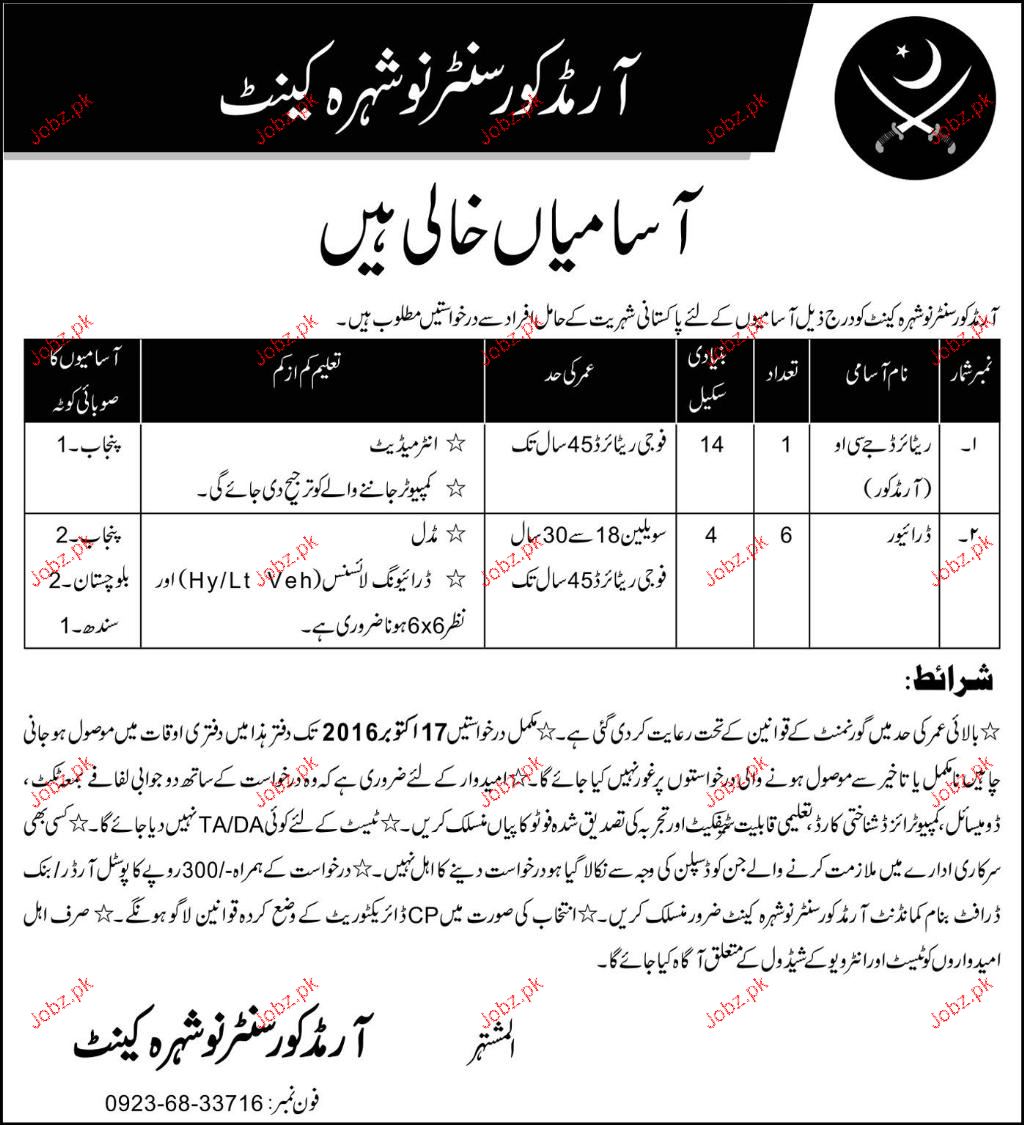 آرمڈ کور سنٹر نوشہرہ کینٹ
آسامیاں خالی ہیں
آرمڈ کور سنٹر نوشہرہ کینٹ کو درج ذیل آسامیوں کے لئے پاکستانی شہریت کے حامل افراد سے درخواستیں مطلوب ہیں۔
نمبر شمار نام آسامی تعداد بنیادی سکیل عمر کی حد تعلیم کم از کم آسامیوں کا صوبائی کوٹہ
۱۔ ریٹائرڈ جے سی او 1 14 فوجی ریٹائرڈ 45 سال تک ☆ انٹرمیڈیٹ پنجاب۔1
(آرمڈ کور) ☆ کمپیوٹر جاننے والے کو ترجیح دی جائے گی۔
۲۔ ڈرائیور 6 4 سویلین 18 سے 30 سال ☆ مڈل پنجاب۔2
فوجی ریٹائرڈ 45 سال تک ☆ ڈرائیونگ لائسنس (Hy/Lt Veh) اور بلوچستان۔2
نظر 6x6 ہونا ضروری ہے۔ سندھ۔1
شرائط:
☆ بالائی عمر کی حد میں گورنمنٹ کے قوانین کے تحت رعایت کر دی گئی ہے۔ ☆ مکمل درخواستیں 17 اکتوبر 2016 تک دفتر ہذا میں دفتری اوقات میں موصول ہو جانی
چاہیں نامکمل یا تاخیر سے موصول ہونے والی درخواستوں پر غور نہیں کیا جائے گا۔ ☆ امیدوار کے لئے ضروری ہے کہ وہ درخواست کے ساتھ دو جوابی لفافے بمعہ ٹکٹ،
ڈومیسائل، کمپیوٹرائزڈ شناختی کارڈ، تعلیمی قابلیت سرٹیفکیٹ اور تجربہ کی تصدیق شدہ فوٹو کاپیاں منسلک کریں۔ ☆ ٹیسٹ کے لئے کوئی TA/DA نہیں دیا جائے گا۔ ☆ کسی بھی
سرکاری ادارے میں ملازمت کرنے والے جن کو ڈسپلن کی وجہ سے نکالا گیا ہو درخواست دینے کا اہل نہیں۔ ☆ درخواست کے ہمراہ -/300 روپے کا پوسٹل آرڈر/بنک
ڈرافٹ بنام کمانڈنٹ آرمڈ کور سنٹر نوشہرہ کینٹ ضرور منسلک کریں۔ ☆ انتخاب کی صورت میں CP ڈائریکٹوریٹ کے وضع کردہ قوانین لاگو ہونگے۔ ☆ صرف اہل
امیدواروں کو ٹیسٹ اور انٹرویو کے شیڈول کے متعلق آگاہ کیا جائے گا۔
المشتہر
آرمڈ کور سنٹر نوشہرہ کینٹ
فون نمبر: 0923-68-33716
Jobz.pk